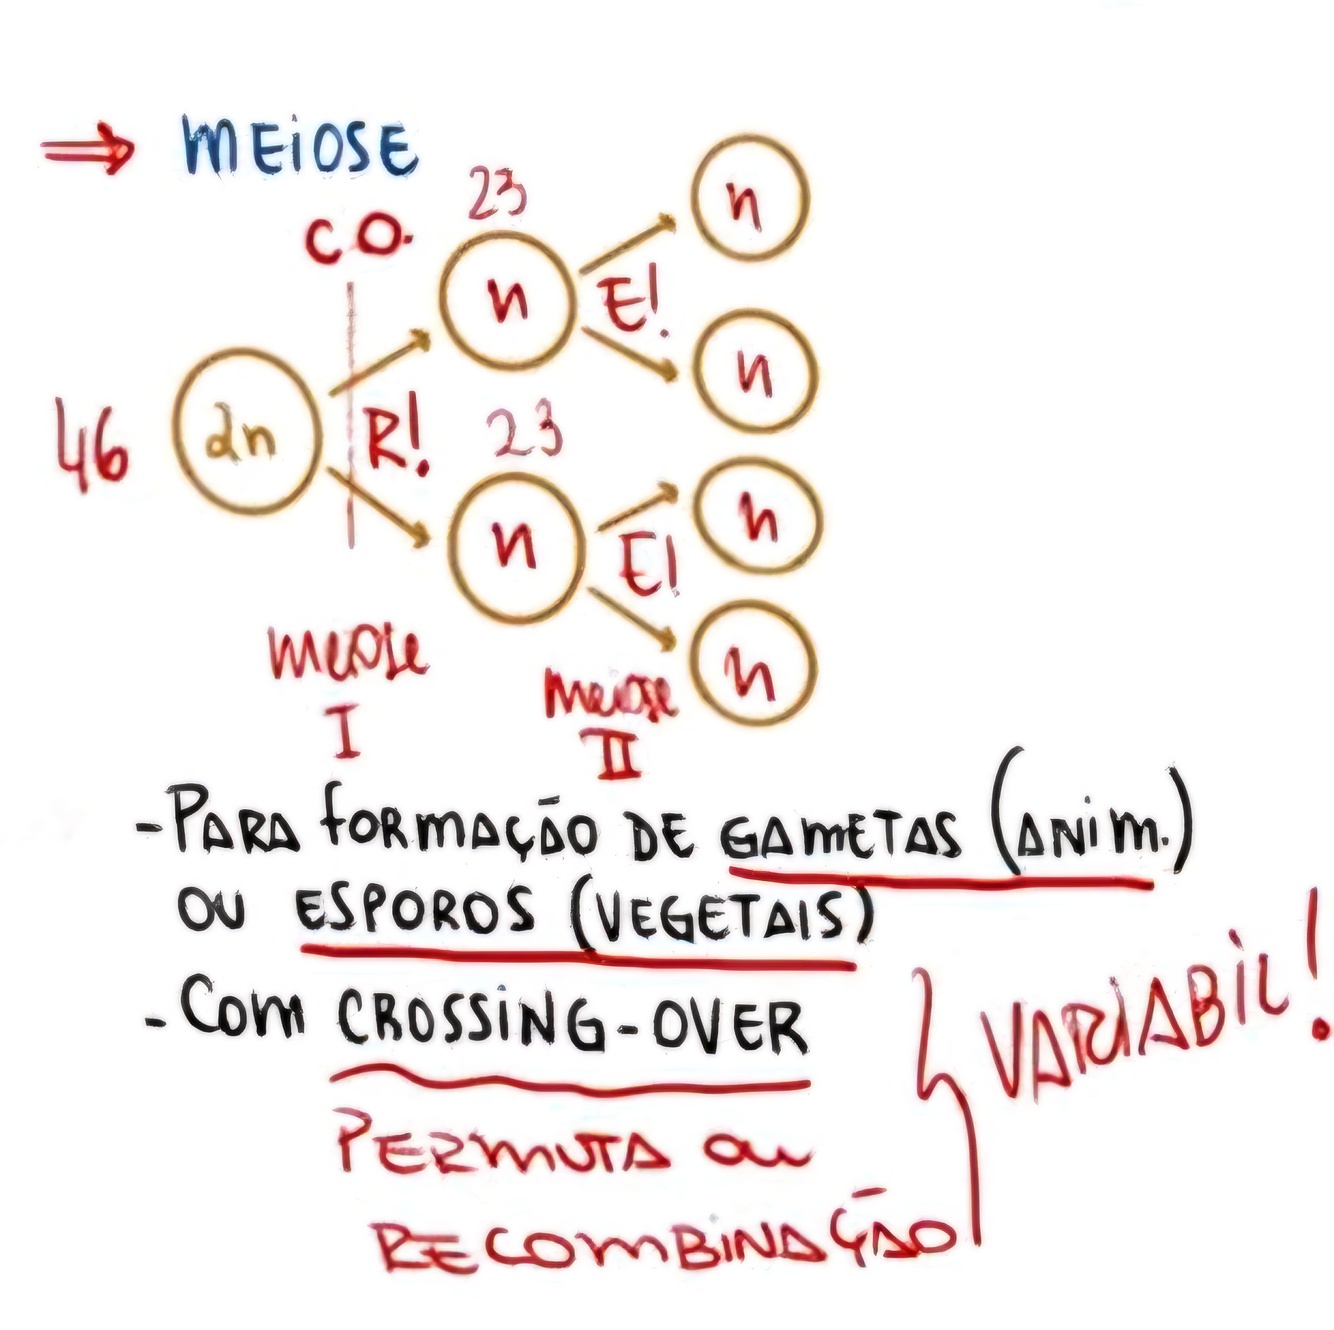 ⇒ MEIOSE
23
n
C.O.
n
E!
n
46
2n
R!
23
n
n
E!
n
n
meiose
I
meiose
II
-PARA FORMAÇÃO DE GAMETAS (ANIM.)
OU ESPOROS (VEGETAIS)
-COM CROSSING-OVER
VARIABIL!
PERMUTA OU
RECOMBINAÇÃO